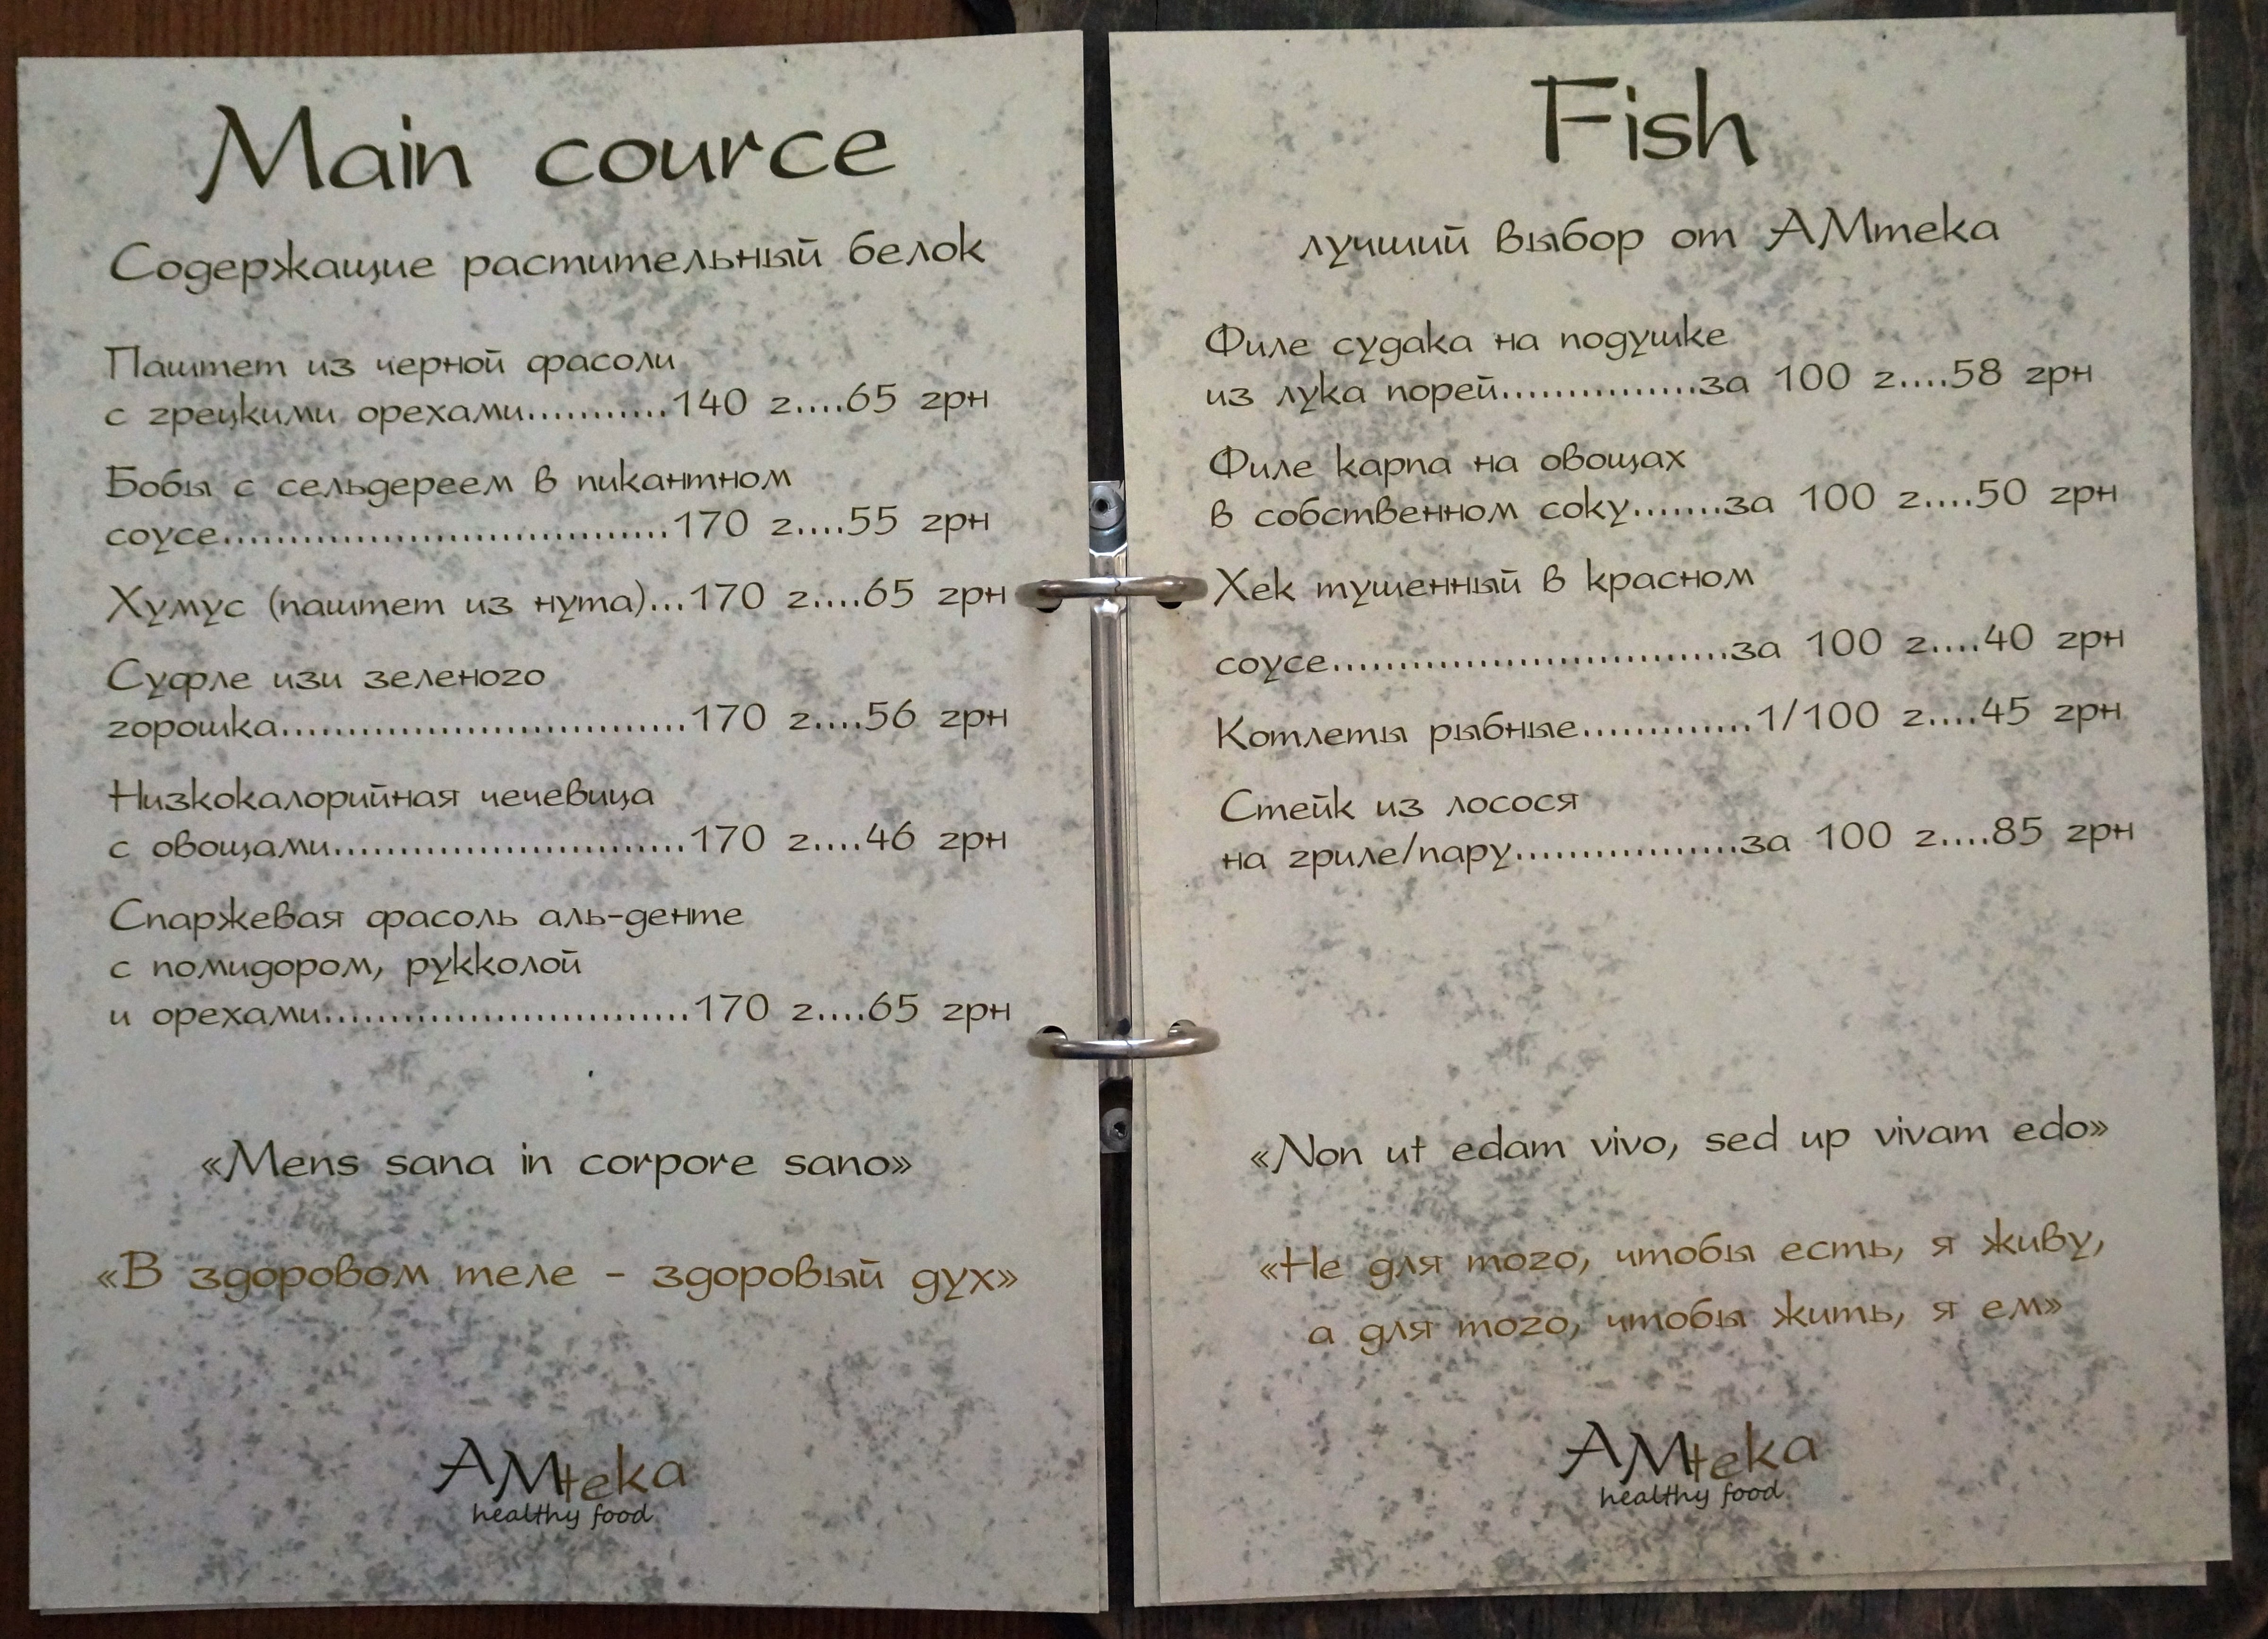 Main cource
Содержащие растительный белок
Паштет из черной фасоли
с грецкими орехами...........140 г....65 грн
Бобы с сельдереем в пикантном
соусе..................................170 г....55 грн
Хумус (паштет из нута)...170 г....65 грн
Суфле изи зеленого
горошка...............................170 г....56 грн
Низкокалорийная чечевица
с овощами...........................170 г....46 грн
Спаржевая фасоль аль-денте
с помидором, рукколой
и орехами............................170 г....65 грн
«Mens sana in corpore sano»
«В здоровом теле - здоровый дух»
AMteka
healthy food
Fish
лучший выбор от АМтека
Филе судака на подушке
из лука порей...............за 100 г....58 грн
Филе карпа на овощах
в собственном соку.......за 100 г....50 грн
Хек тушенный в красном
соусе..............................за 100 г....40 грн
Котлеты рыбные.............1/100 г....45 грн
Стейк из лосося
на гриле/пару.................за 100 г....85 грн
«Non ut edam vivo, sed up vivam edo»
«Не для того, чтобы есть, я живу,
а для того, чтобы жить, я ем»
AMteka
healthy food